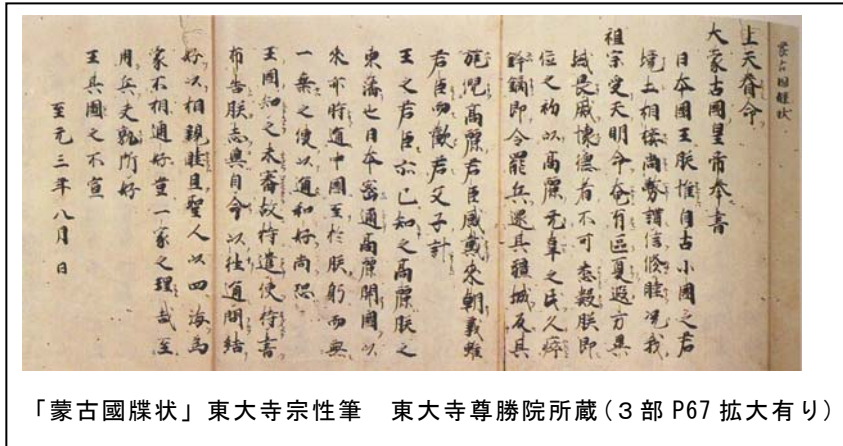 蒙古国牒状
上天眷命
大蒙古國皇帝奉書
日本國王朕惟自古小國之君
境土相接尚務講信修睦况我
祖宗受天明命奄有區夏遐方異
域畏威懷德者不可悉數朕即
位之初以高麗无辜之民久瘁
鋒鏑即令罷兵還其疆域反其
旄倪高麗君臣感戴来朝義雖
君臣而歡若父子計
王之君臣亦已知之高麗朕之
東藩也日本密迩高麗開國以
来亦時通中國至於朕躬而無
一乗之使以通和好尚恐
王國知之未審故特遣使持書
布告朕志冀自今以往通問結
好以相親睦且聖人以四海為
家不相通好豈一家之理哉至
用兵夫孰所好
王其圖之不宣
至元三年八月 日
「蒙古國牒状」東大寺宗性筆　東大寺尊勝院所蔵(３部 P67 拡大有り)